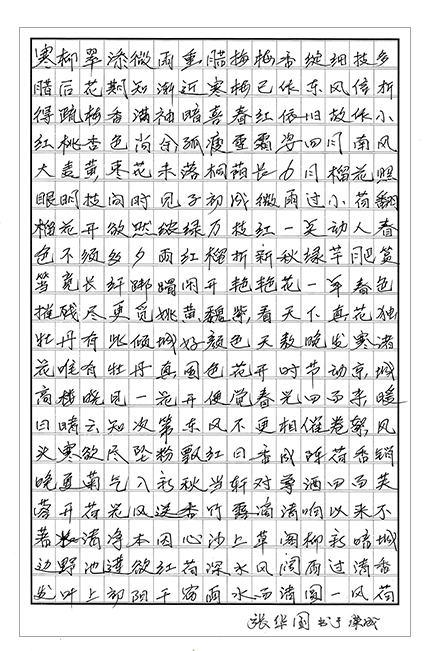 寒柳翠添微雨重腊梅梅香绽细枝多
腊后花期知渐近寒梅已作东风信折
得疏梅香满袖暗喜春红依旧故作小
红桃杏色尚余孤瘦雪霜姿四月南风
大麦黄枣花未落桐荫长力月榴花照
眼明枝间时见子初成微雨过小荷翻
榴花开欲燃绽绿万枝红一点动人春
色不须多夕雨红榴拆新秋绿芋肥篮
笃竞长纤踯躅闲开艳艳花一年春色
摧残尽更觅姚黄魏紫看天下真花独
牡丹有此倾城好颜色天教晚发赛者
花唯有牡丹真国色花开时节动京城
高楼晓见一花开便觉春光四面来暖
日晴云知次第东风不更相催卷絮风
头寒欲尽坠粉飘红日香成阵荷香销
晚夏菊气入新秋当轩对尊酒四面芙
蓉开荷花风送香竹露滴清响以来不
著水清净本因心沙上草阁柳新暗城
边野池莲欲红荷深水风阔雨过清香
发叶上初阳干宿雨水面清圆一风荷
张华国 书于荣成